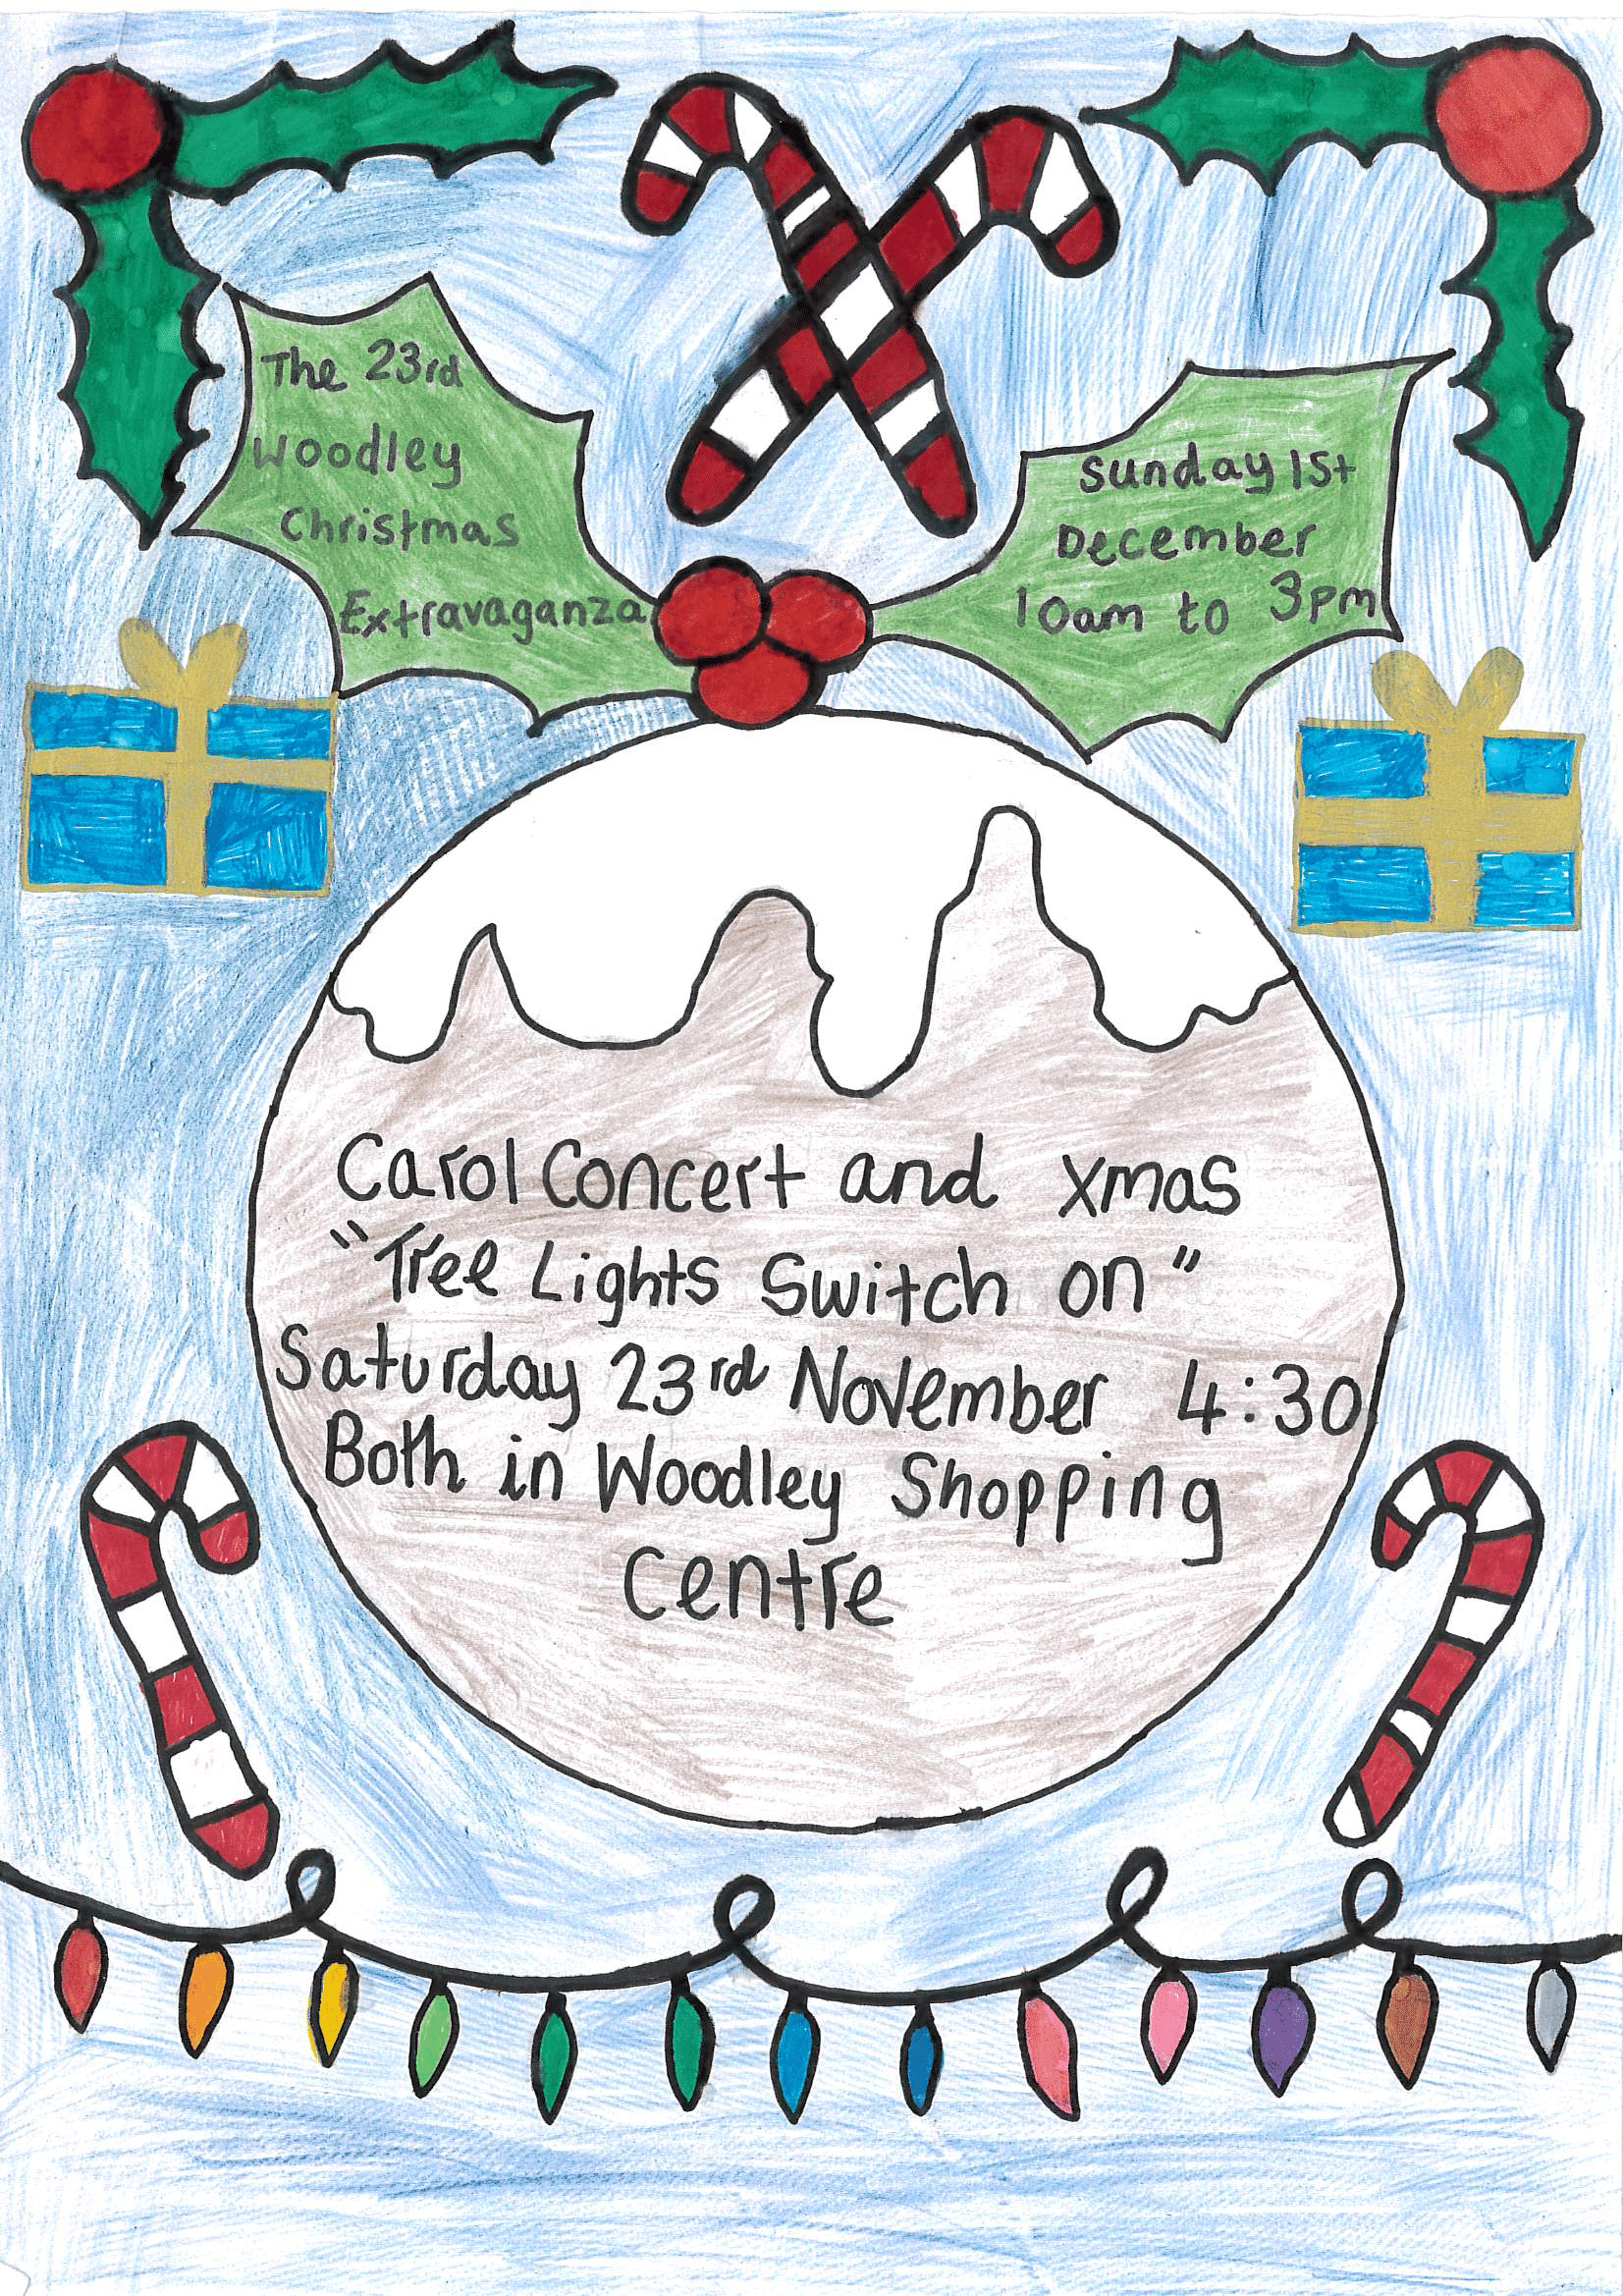 The 23rd
Woodley
Christmas
Extravaganza
Sunday 1st
December
10am to 3pm
Carol Concert and xmas
"Tree Lights Switch on"
Saturday 23rd November 4:30
Both in Woodley Shopping
Centre